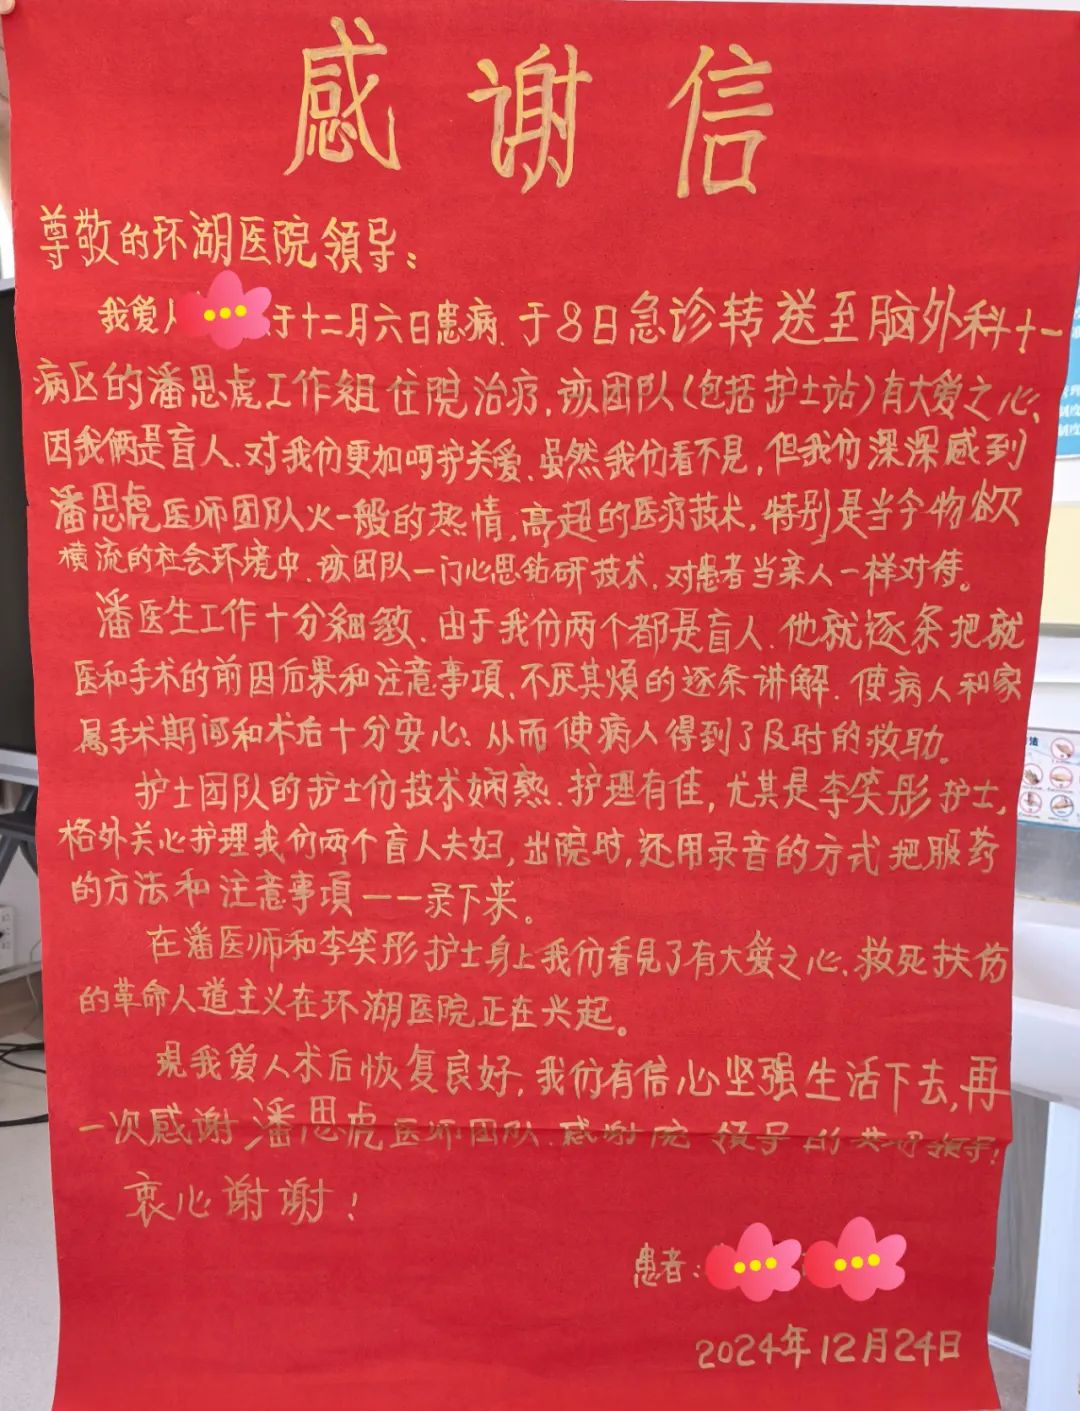 感谢信
尊敬的环湖医院领导：
我爱人于十二月六日患病.于8日急诊转送至脑外科十一
病区的潘思虎工作组住院治疗.该团队(包括护士站)有大爱之心、
因我俩是盲人.对我们更加呵护关爱.虽然我们看不見,但我们深深感到
潘思虎医师团队火一般的热情,高超的医疗技术,特别是当今物欲
横流的社会环境中.该团队一门心思钻研技术.对患者当亲人一样对待。
潘医生工作十分細致.由于我们两个都是盲人.他就逐条把就
医和手术的前因后果和注意事項.不厌其煩的逐条讲解.使病人和家
属手术期间和术后十分安心:从而使病人得到了及时的救助.
护士团队的护士们技术娴熟.护理有佳,尤其是李笑彤护士,
格外关心护理我们两个盲人夫妇,出院时,还用录音的方式把服药
的方法和注意事項一一录下来。
在潘医师和李笑彤护士身上我们看見了有大爱之心.救死扶伤
的革命人道主义在环湖医院正在兴起。
現我爱人术后恢复良好,我们有信心坚强生活下去,再
一次感谢潘思虎医师团队.感谢院领导的英明领导!
衷心谢谢!
患者:
2024年12月24日